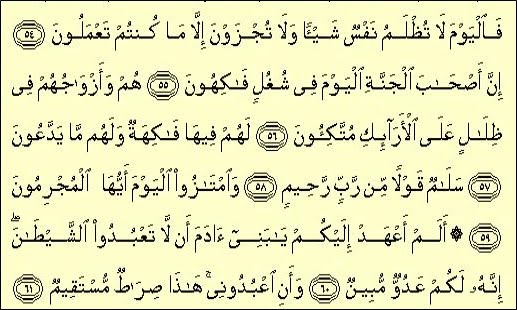 فَٱلْيَوْمَ لَا تُظْلَمُ نَفْسٌ شَيْـًٔا وَلَا تُجْزَوْنَ إِلَّا مَا كُنتُمْ تَعْمَلُونَ ٥٤
إِنَّ أَصْحَـٰبَ ٱلْجَنَّةِ ٱلْيَوْمَ فِى شُغُلٍ فَـٰكِهُونَ ٥٥ هُمْ وَأَزْوَٰجُهُمْ فِى
ظِلَـٰلٍ عَلَى ٱلْأَرَآئِكِ مُتَّكِـُٔونَ ٥٦ لَهُمْ فِيهَا فَـٰكِهَةٌ وَلَهُم مَّا يَدَّعُونَ
٥٧ سَلَـٰمٌ قَوْلًا مِّن رَّبٍّ رَّحِيمٍ ٥٨ وَٱمْتَـٰزُوا۟ ٱلْيَوْمَ أَيُّهَا ٱلْمُجْرِمُونَ
٥٩ ۞ أَلَمْ أَعْهَدْ إِلَيْكُمْ يَـٰبَنِىٓ ءَادَمَ أَن لَّا تَعْبُدُوا۟ ٱلشَّيْطَـٰنَ ۖ
إِنَّهُۥ لَكُمْ عَدُوٌّ مُّبِينٌ ٦٠ وَأَنِ ٱعْبُدُونِى ۚ هَـٰذَا صِرَٰطٌ مُّسْتَقِيمٌ ٦١